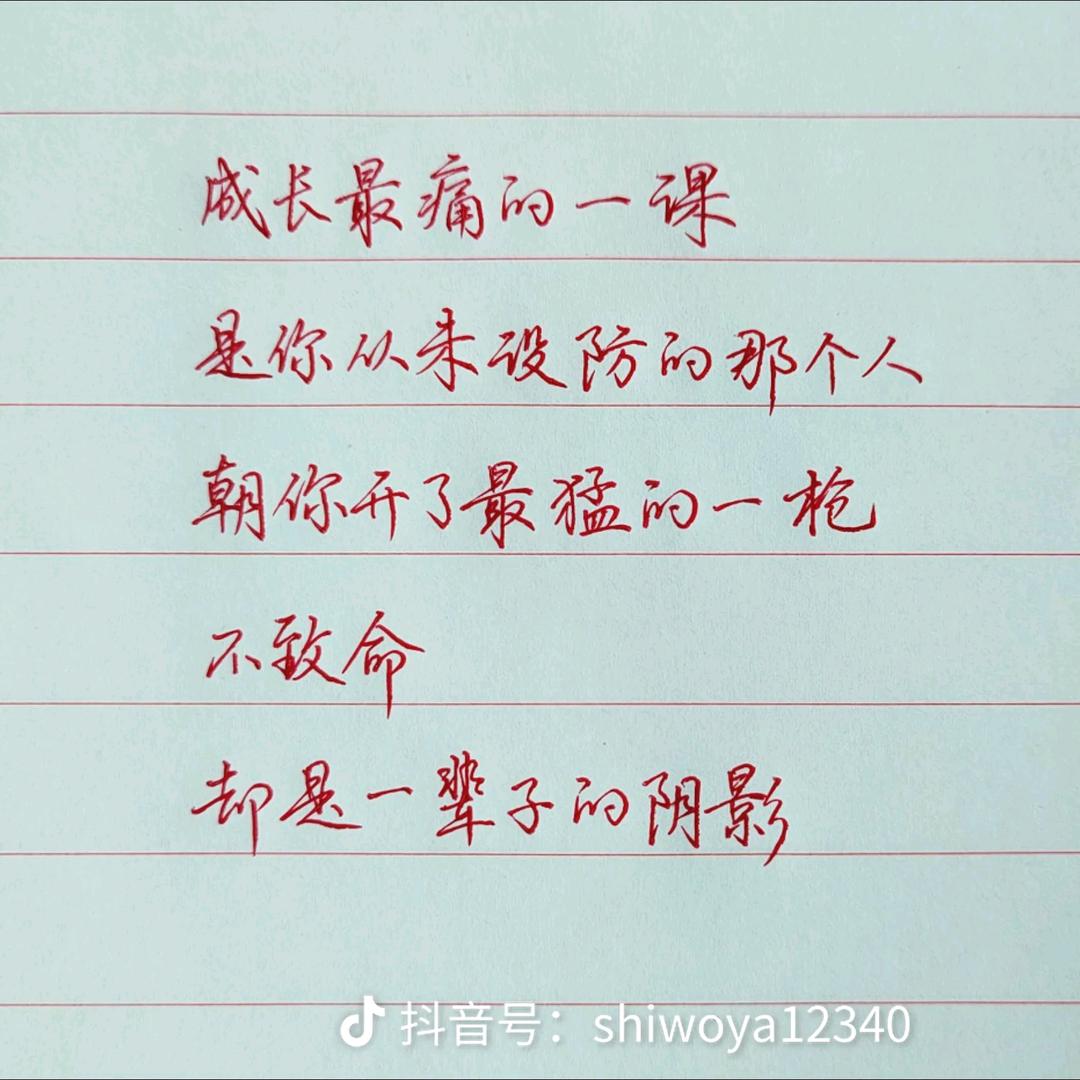 成长最痛的一课
是你从未设防的那个人
朝你开了最猛的一枪
不致命
却是一辈子的阴影
抖音号：shiwoya12340